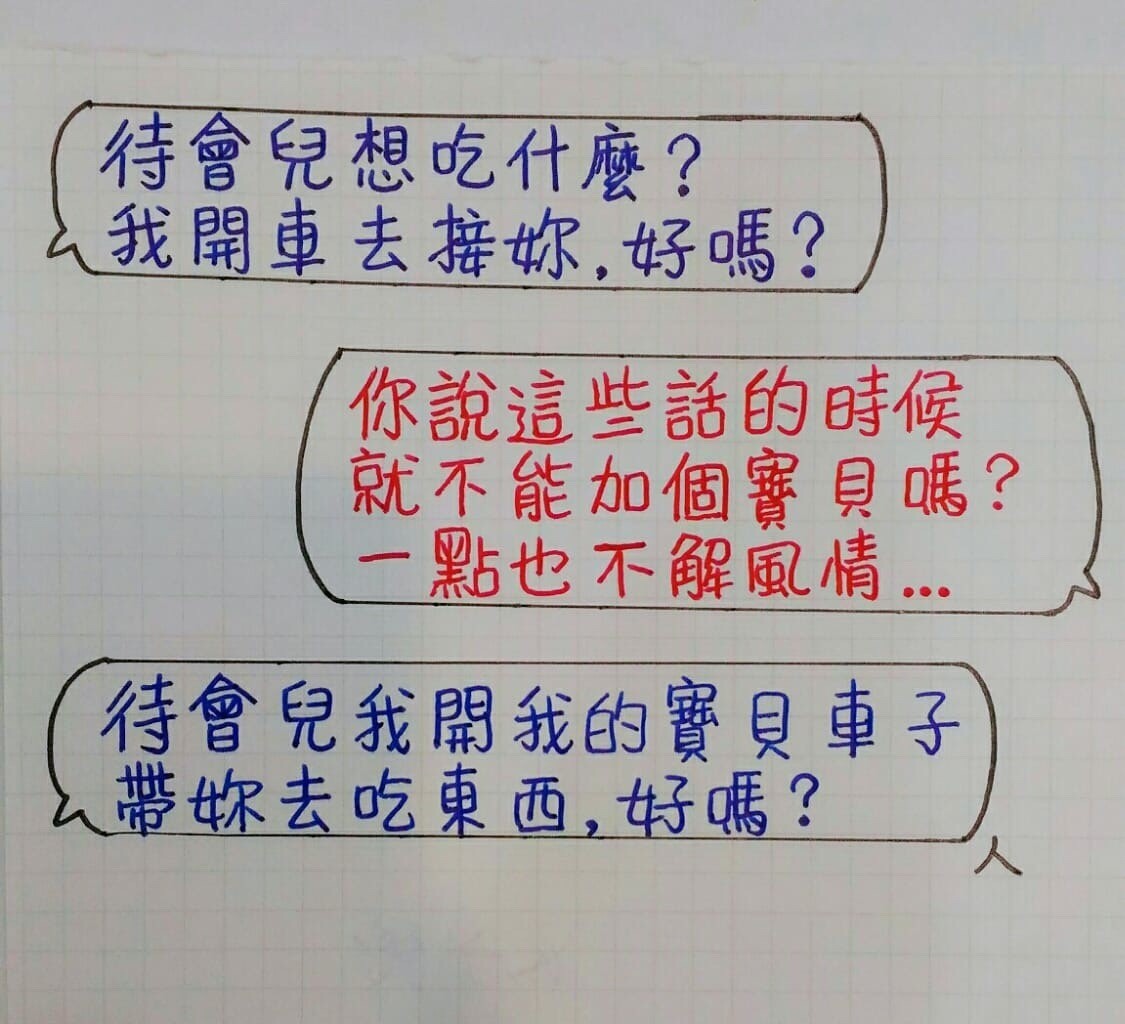 待會兒想吃什麼？
我開車去接妳，好嗎？
你說這些話的時候
就不能加個寶貝嗎？
一點也不解風情...
待會兒我開我的寶貝車子
帶妳去吃東西，好嗎？
人